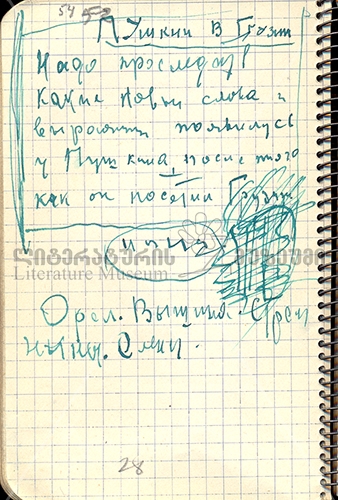 54
Пушкин в Грузии
Надо проследить
какие новые слова и
выражения появились
у Пушкина после того
как он посетил Грузию
ლიტერატურის მუზეუმი
Literature Museum
Орел. Вышина. Стрем
нина.
28